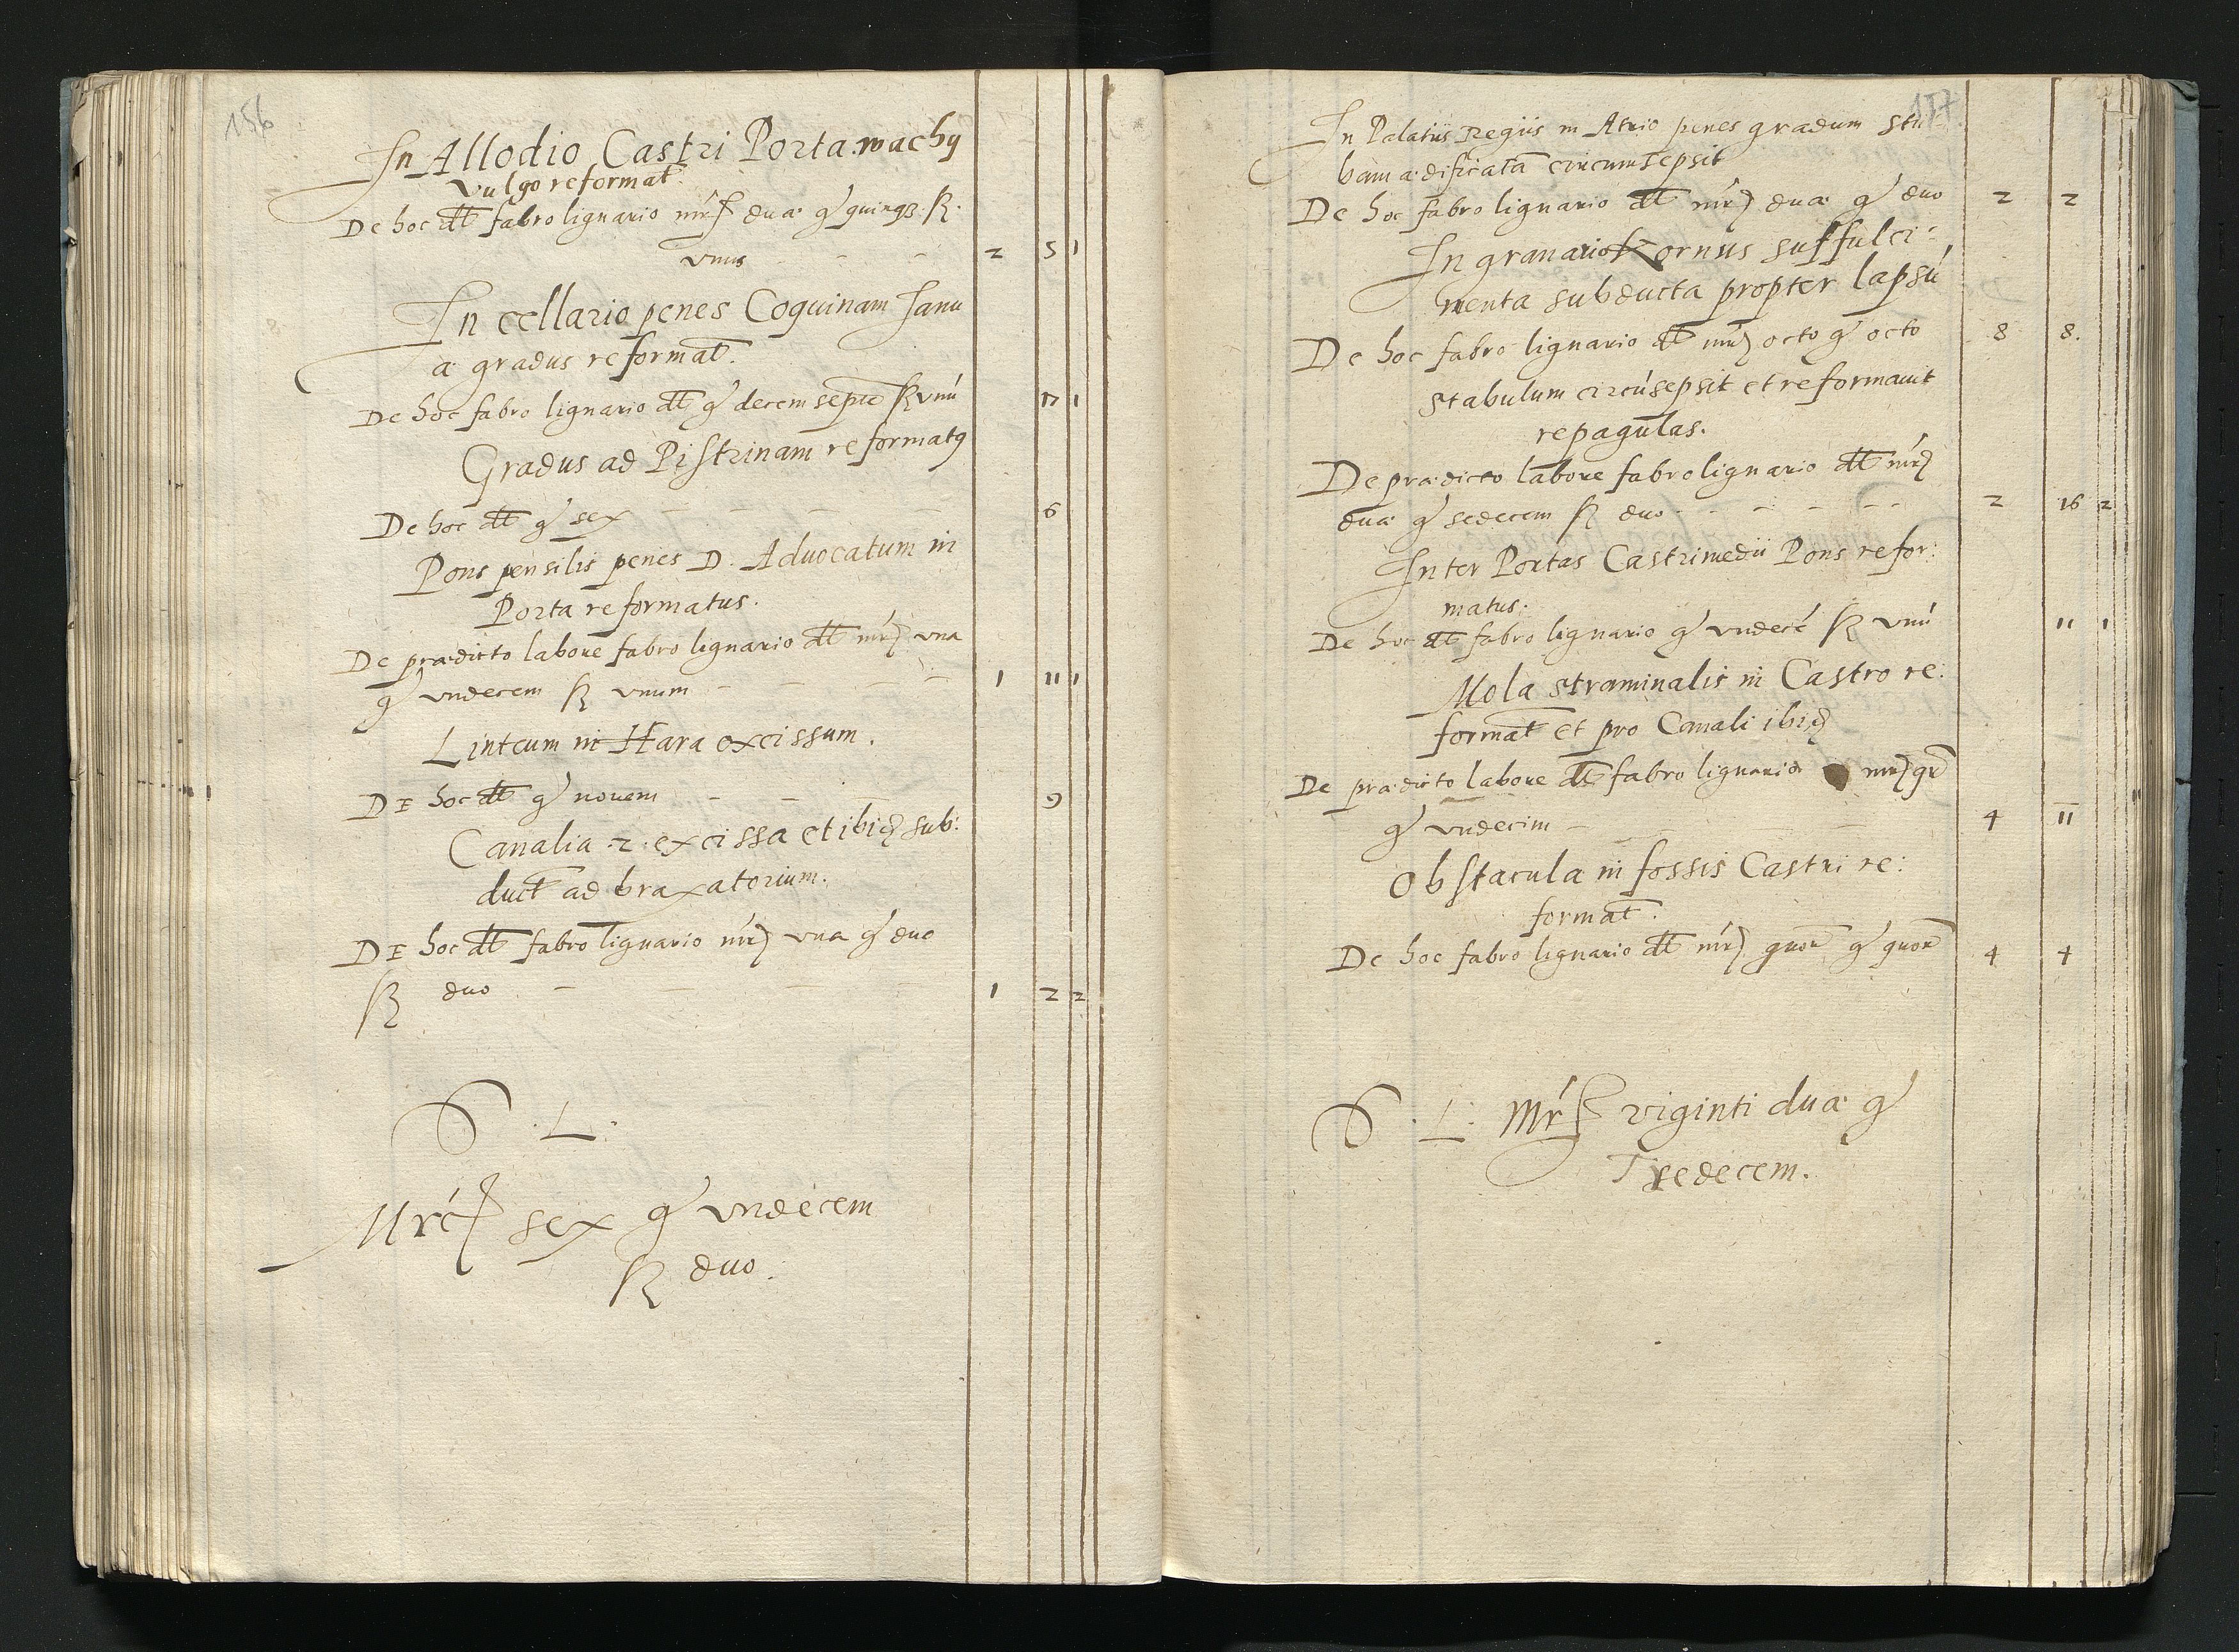 156
In Allodio Castri Porta: wachy
vulgo reformat.
De hoc dt fabro lignario mrc dua: g quinq3. sz.
vnus - - - 2 5 1
In cellario penes Coquinam Janu
a: gradus reformat.
De hoc fabro lignario dt g decem septe sz vnu 17 1
Gradus ad Pistrinam reformatq
De hoc dt g sex - - - - 6
Pons pensilis penes D. Aduocatum in
Porta reformatus.
De pra:dicto labore fabro lignario dt mrc vna
g vndecem sz vnum - - - - 1 11 1
Linteum in Hara excissum.
DE hoc dt g nouem - - - 9
Canalia .2. excissa et ibid sub:
duct ad braxatorium.
DE hoc dt fabro lignario mrc vna g duo
sz duo - - - - 1 2 2
S . L .
Mrc sex g vndecem
sz duo.
157
In Palatiis Regiis in Atrio penes gradum stu
bam a:dificata circumsepsit
De hoc fabro lignario dt mrc dua: g duo 2 2
In granario Kornus suffulci:
menta subducta propter lapsu
De hoc fabro lignario dt mrc octo g octo 8 8.
Stabulum circusepsit et reformauit
repagulas.
De pra:dicto labore fabro lignario dt mrc
dua: g sedecem sz duo - - - - 2 16 2
Inter Portas Castri medii Pons refor:
matus.
De hoc dt fabro lignario g vndece sz vnu 11 1
Mola straminalis in Castro re:
format et pro Canali ibid
De pra:dicto labore dt fabro lignario mrc qr
g vndecim - - - 4 11
Obstacula in fossis Castri re:
format.
De hoc fabro lignario dt mrc quor g quor 4 4
S . L . Mrc viginti dua: g
Tredecem.